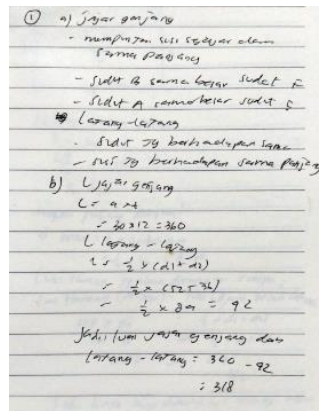 ① a) jajar genjang
- mempunyai sisi sejajar dan
sama panjang
- sudut B sama besar sudut F
- sudut A sama besar sudut C
layang-layang
- sudut yg berhadapan sama
- sisi yg berhadapan sama panjang
b) L jajar genjang
L = a x t
= 30 x 12 = 360
L layang-layang
L = ½ x (d1 + d2)
= ½ x (52 + 36)
= ½ x = 92
Jadi luas jajar genjang dan
layang-layang = 360 - 92
= 318